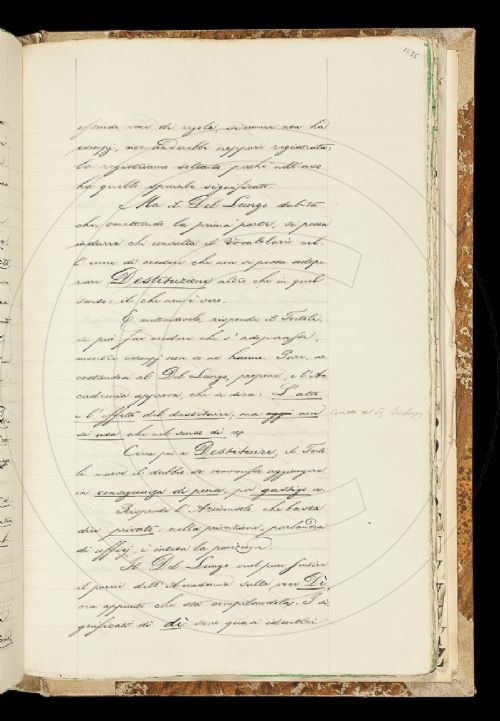 essendo voce di regola, siccome non ha
esempj, non dovrebbe neppure registrarsi;
la registriamo soltanto perchè nell'uso
ha quello speciale significato.
Ma il Del Lungo dubita
che, omettendo la prima parte, si possa
indurre chi consulta il Vocabolario nel-
l'errore di credere che non si possa adope-
rare Destituzione altro che in quel
senso: il che non è vero.
È naturale, risponde il Tortoli,
se può far credere che s'adoperasse,
mentre esempj non se ne hanno. Pure, ac-
costandosi al Del Lungo, propone, e l'Ac-
cademia approva, che si dica: L'atto
e l'effetto del destituire; ma oggi non
si usa che nel senso di ec.
Circa poi a Destituire, il Torto-
li muove il dubbio se convenga aggiungere
in conseguenza di pena, per gastigo ec.
Risponde l'Arciconsolo che basta
dire privato: nella privazione, parlandosi
di ufficj, è intesa la punizione.
Il Del Lungo vuol pure sentire
il parere dell'Accademia sulla voce Dì,
ora appunto che sta compilandola. I si-
gnificati di dì sono quasi identici